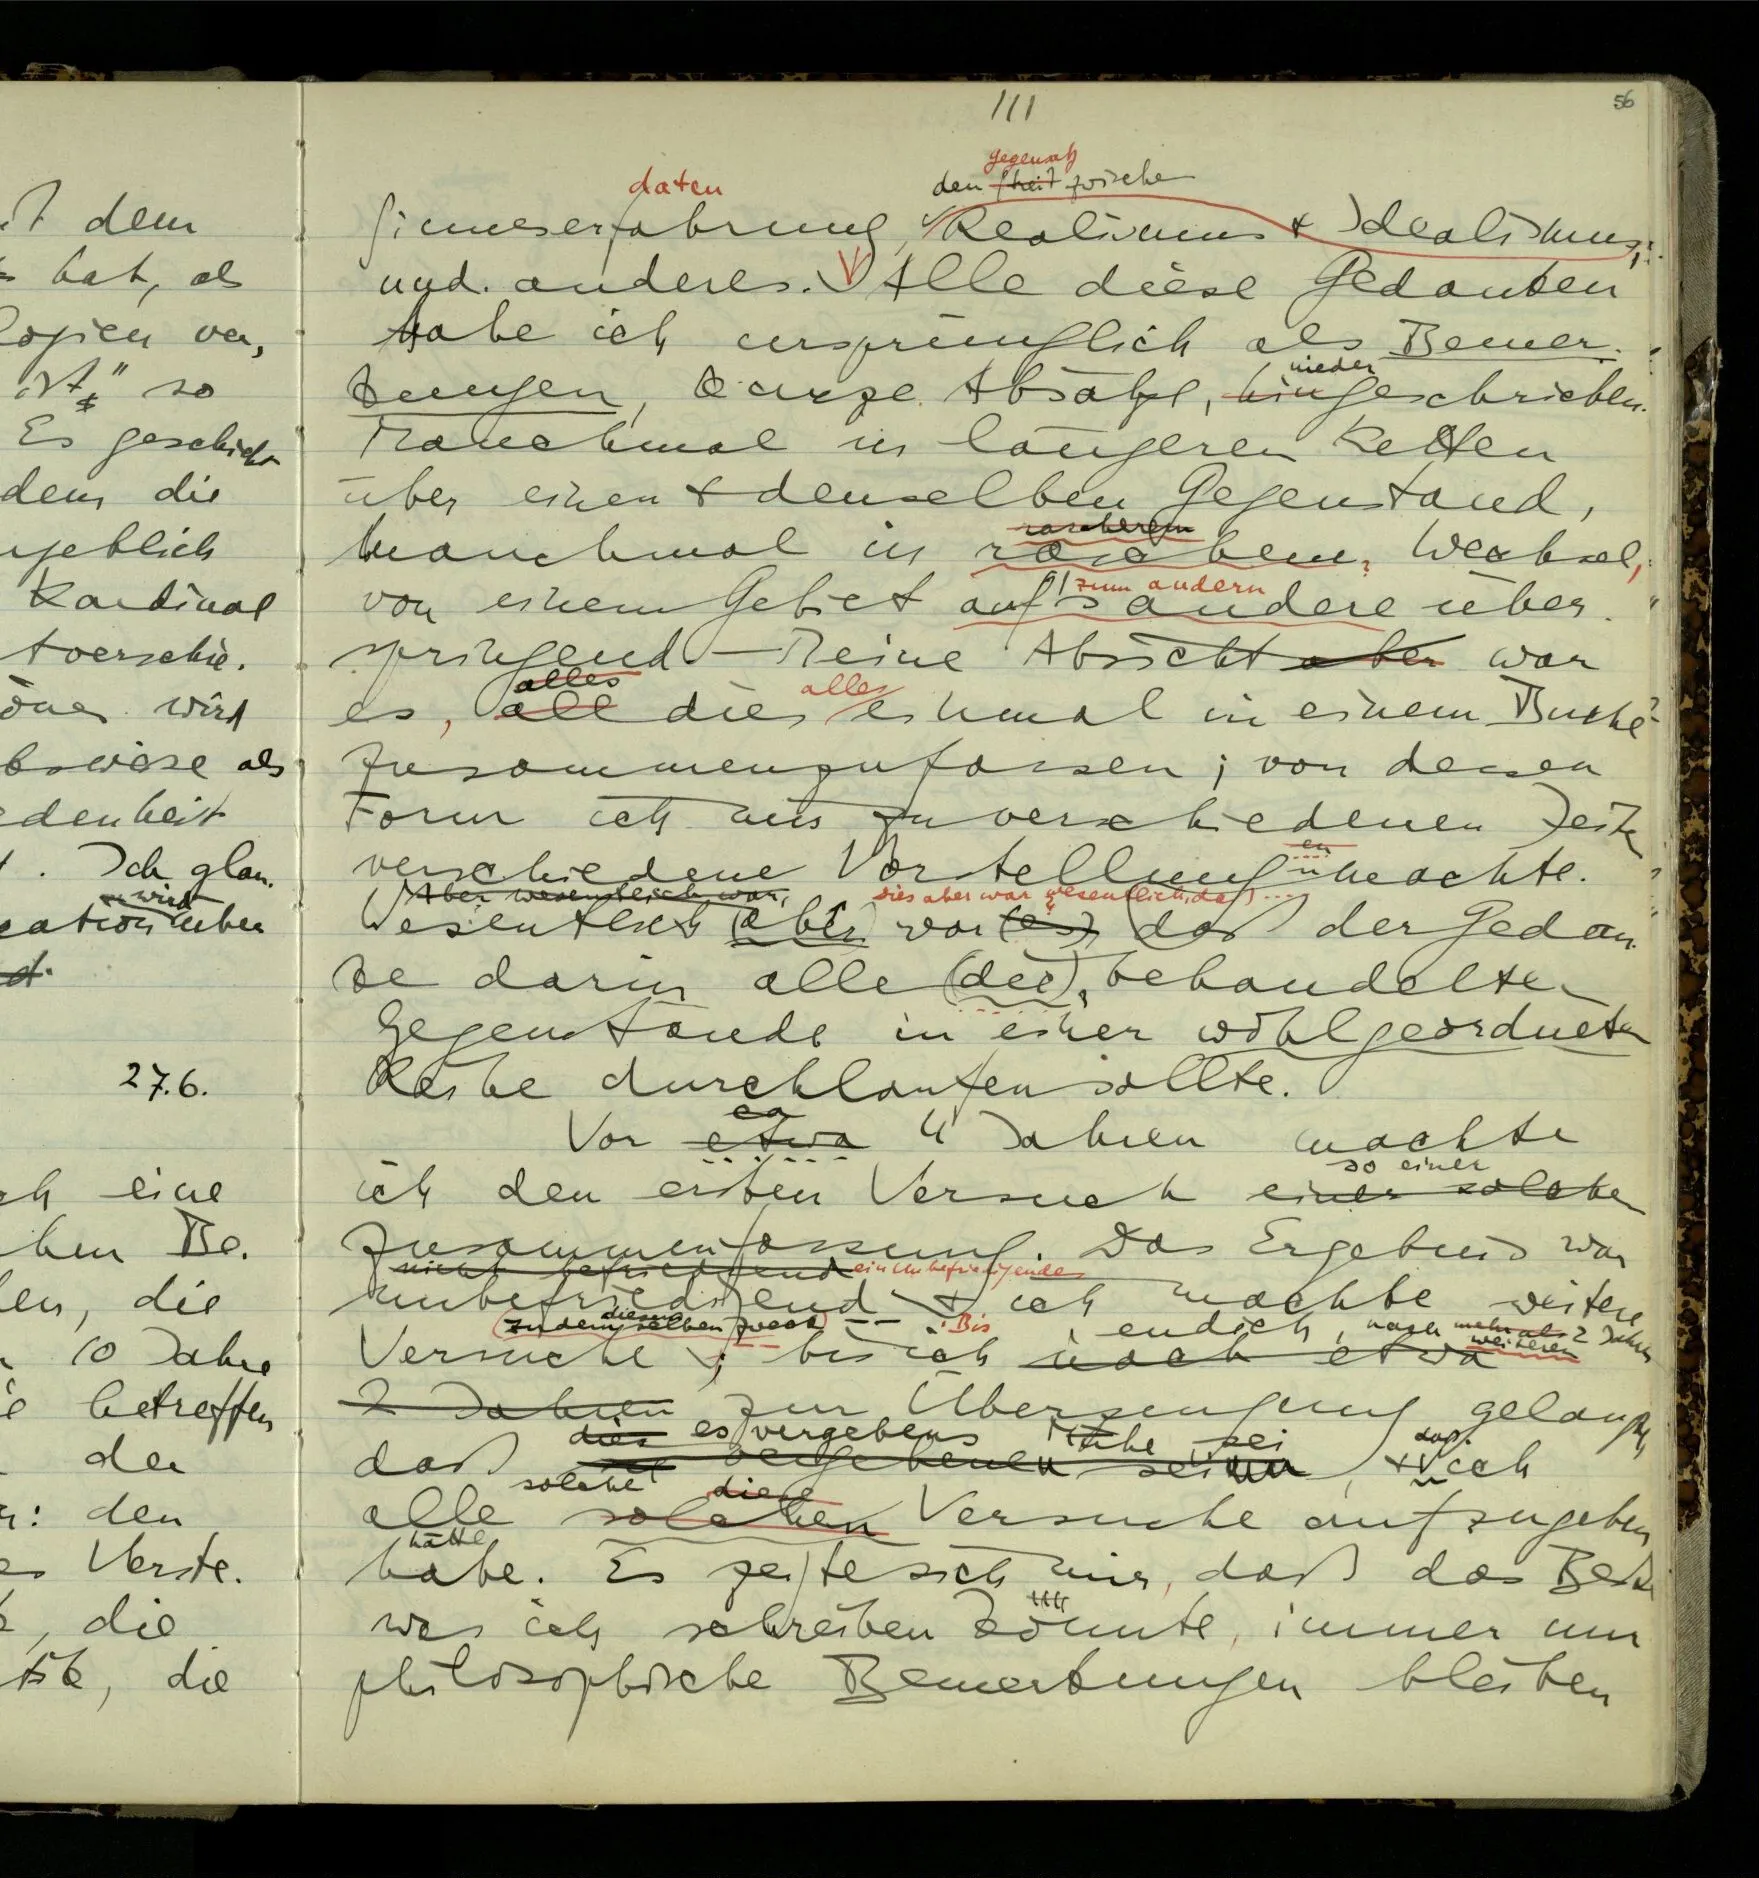 111
56
t dem
hat, als
logien ver,
ist" so
Es geschieht
dem die
ngeblich
Kardinal
tverschie.
wird
bsweise als
edenheit
. Ich glau.
wird
cation über
d.
27.6.
ch eine
hen Be.
len, die
10 Jahre
betreffen
der
r: den
es Verste.
, die
, die
gegensatz
daten den zwischen
Sinneserfahrung, Realismus & Idealismus,
und anderes. Alle diese Gedanken
habe ich ursprünglich als Bemer.
nieder
kungen, kurze Absätze, hingeschrieben.
Manchmal in längeren Ketten
über einen & denselben Gegenstand,
rascherem
manchmal in raschem Wechsel,
zum andern
von einem Gebiet aufs andere über
springend. – Meine Absicht aber war
alles alles
es, all dies einmal in einem Buche
zusammenzufassen; von dessen
Form ich mir zu verschiedenen Zeiten
en
verschiedene Vorstellung machte.
Aber wesentlich war, dies aber war wesentlich, daß ...
Wesentlich (aber) war (es) daß der Gedan.
ke darin alle (die) behandelten
Gegenstände in einer wohlgeordneten
Reihe durchlaufen sollte.
ca
Vor etwa 4 Jahren machte
so einer
ich den ersten Versuch einer solchen
Zusammenfassung. Das Ergebnis war
nicht befriedigend ein unbefriedigendes
unbefriedigend & ich machte weitere
diesem
(zu demselben Zweck) Bis endlich, nach mehr als 2 Jahren
weiteren
Versuche; bis ich nach etwa
2 Jahren zur Überzeugung gelangte,
dies es vergebens Mühe sei daß
daß vergebenen sei & ich
solche diese
alle solchen Versuche aufzugeben
hätte
habe. Es zeigte sich mir, daß das Beste
was ich schreiben könnte, immer nur
philosophische Bemerkungen bleiben